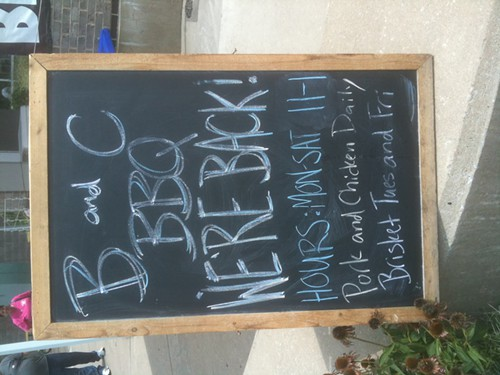 B and C
BBQ
WE'RE BACK!
HOURS: MON-SAT 11-1
Pork and Chicken Daily
Brisket Tues and Fri
B